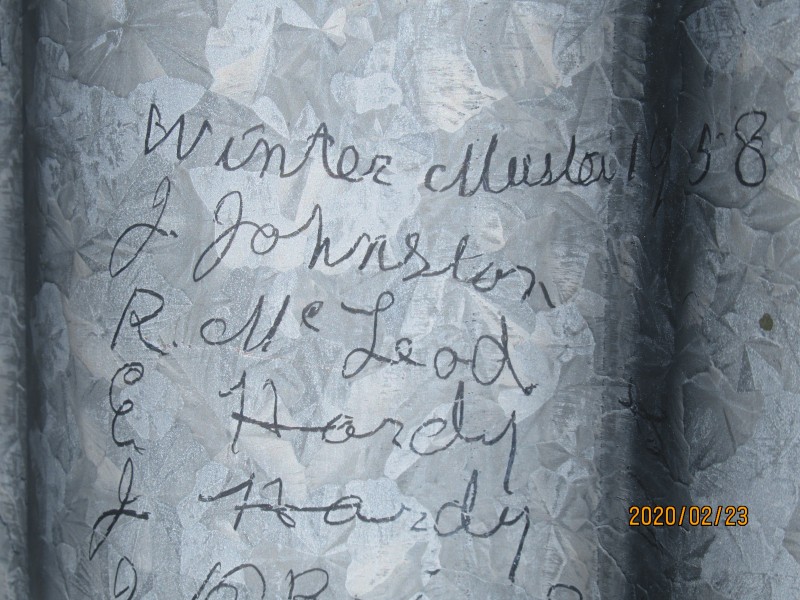 Winter Muster 1958
J. Johnston
R. Mc Leod
E Hardy
J Hardy
J
2020/02/23